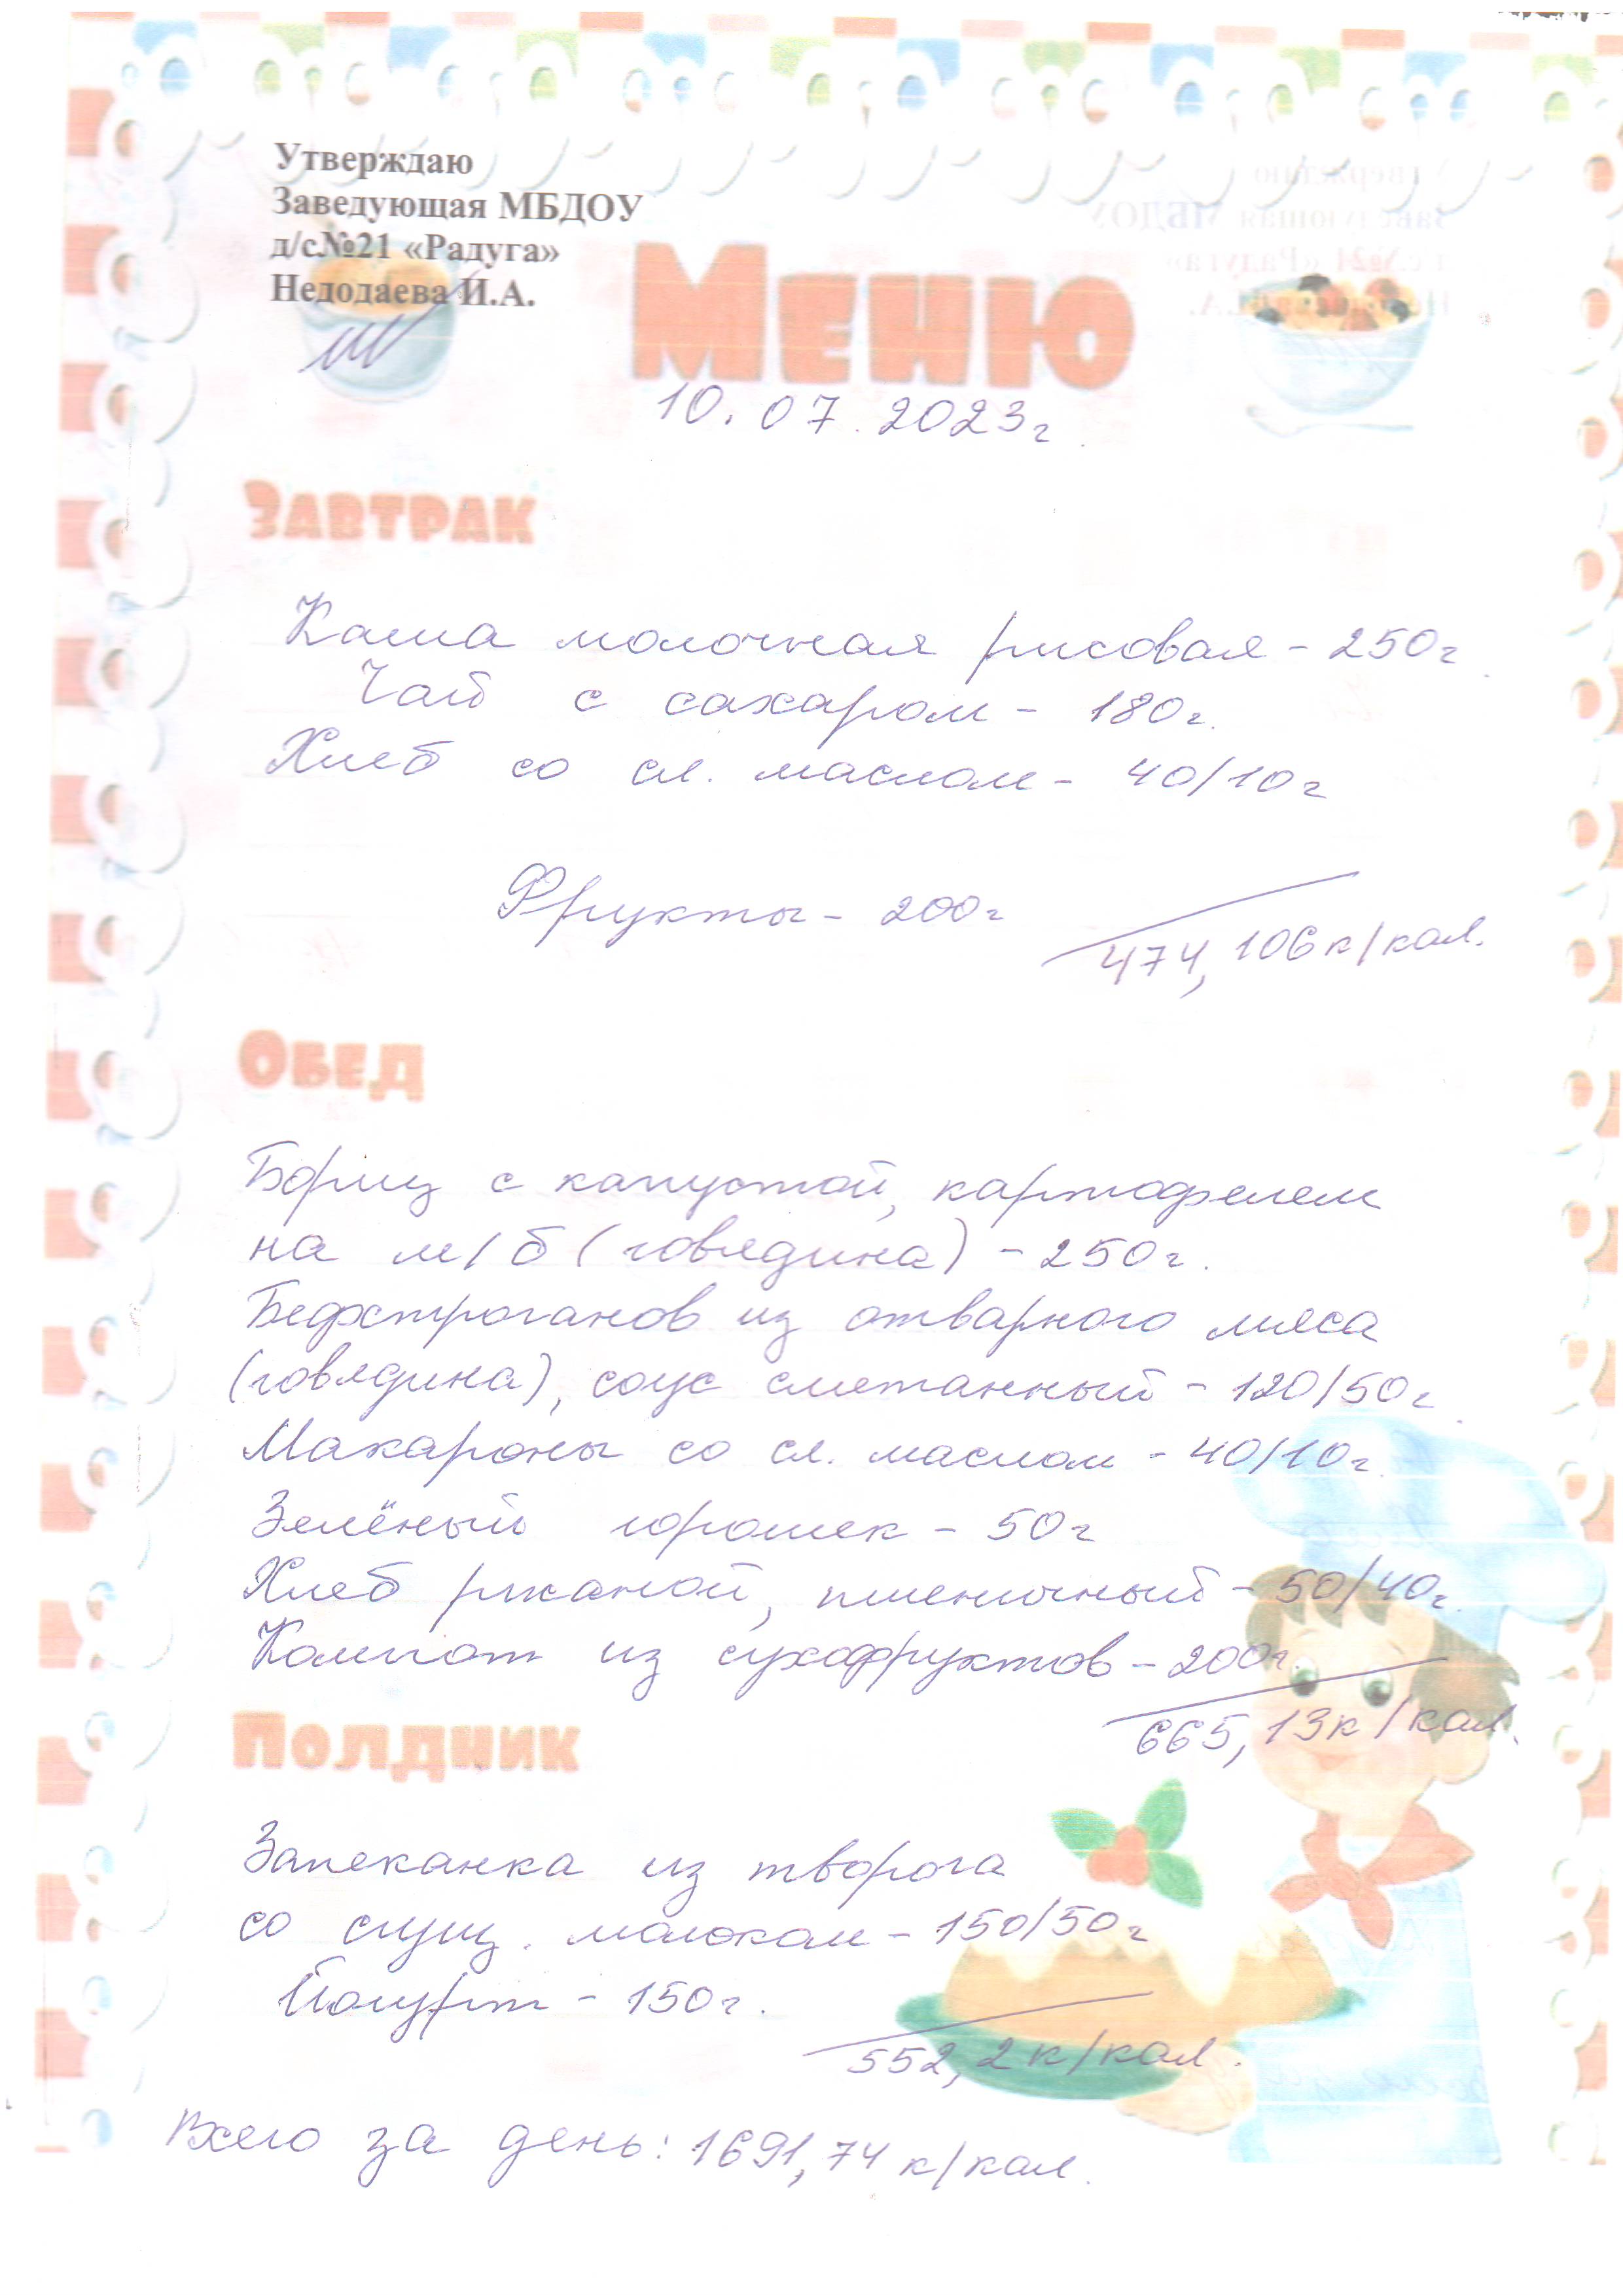 Утверждаю
Заведующая МБДОУ
д/с№21 «Радуга»
Недодаева И.А.
Меню
10.07.2023г.
Завтрак
Каша молочная рисовая - 250г.
Чай с сахаром - 180г.
Хлеб со сл. маслом - 40/10г
Фрукты - 200г
474,106 к/кал.
Обед
Борщ с капустой, картофелем
на м/б (говядина) - 250г.
Бефстроганов из отварного мяса
(говядина), соус сметанный - 120/50г.
Макароны со сл. маслом - 40/10г.
Зелёный горошек - 50г
Хлеб ржаной, пшеничный - 50/40г.
Компот из сухофруктов - 200г.
665,13 к/кал.
Полдник
Запеканка из творога
со сгущ. молоком - 150/50г
Йогурт - 150г.
552,2 к/кал.
Всего за день: 1691,74 к/кал.